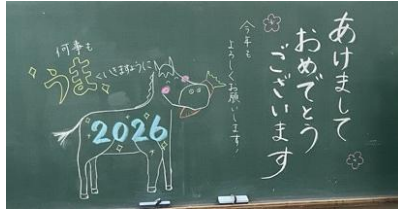 あけまして
おめでとう
ございます
今年も
よろしくお願いします!
何事も
うまくいきますように
2026